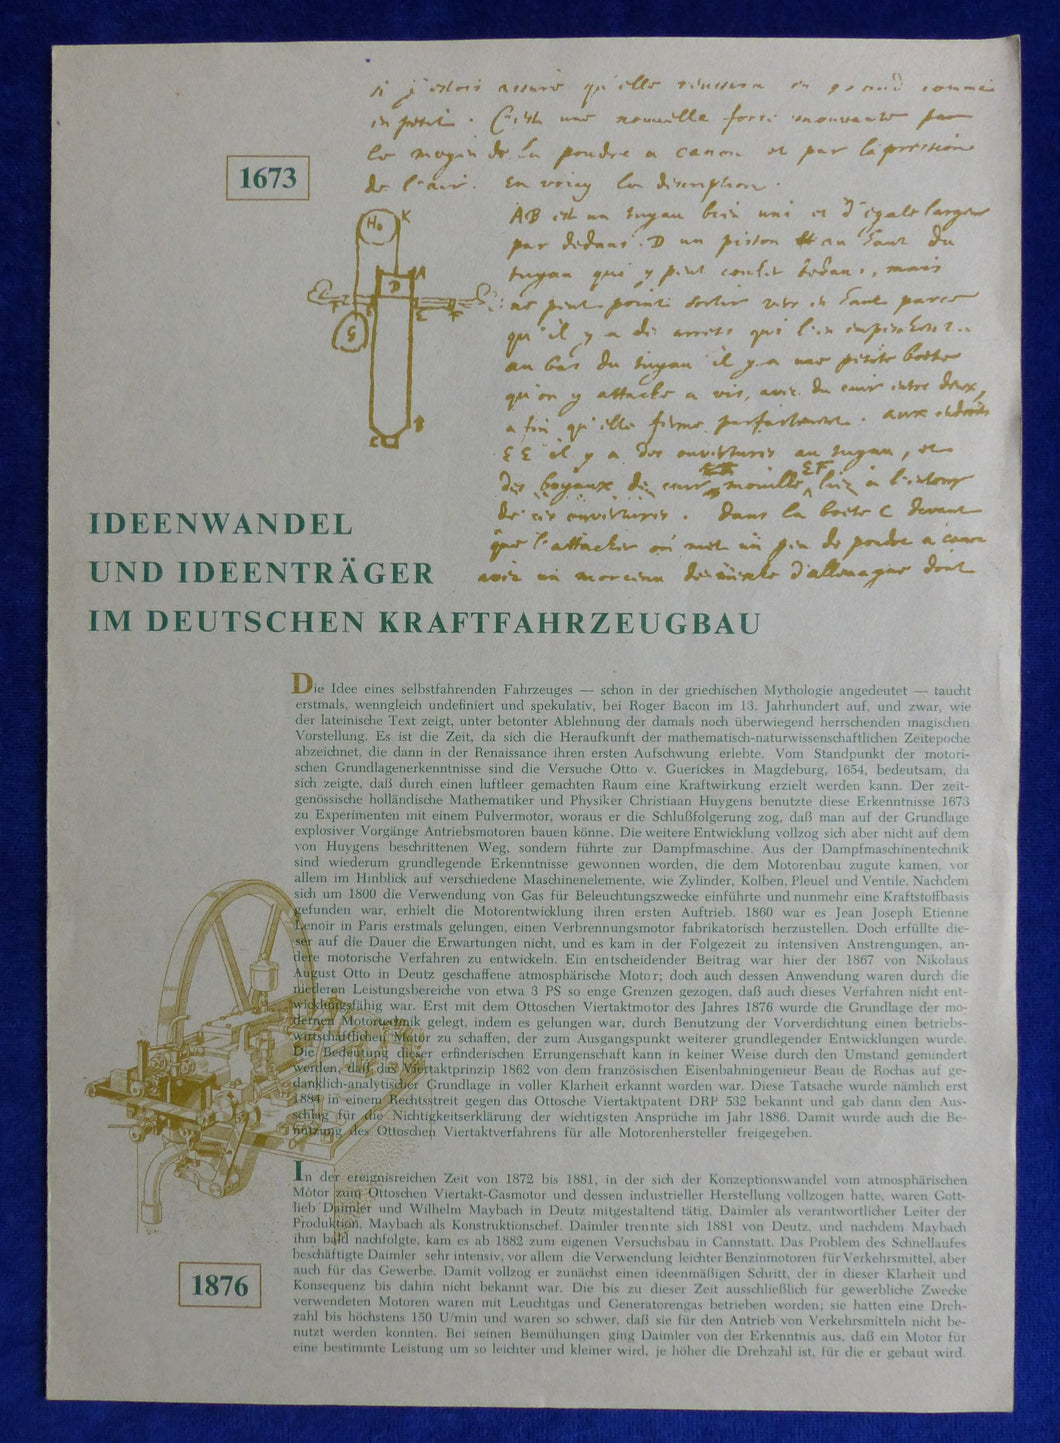 si j'estois assuré qu'elle reussira en grand comme
en petit. C'est une nouvelle force mouvante par
le moyen de la poudre a canon et par la pression
de l'air. En voicy la description.
1673
AB est un tuyau bien uni et d'egale largeur
par dedans. D un piston au haut du
tuyau qui y peut couler dedans, mais
ne peut point sortir vers en haut parce
qu'il y a des arrets qui l'en empeschent.
au bas du tuyau il y a une petite boete
qu'on y attache a vis, avec du cuir entre deux,
a fin qu'elle ferme parfaitement. aux endroits
EE il y a des ouvertures au tuyau, et
des boyaux de cuir mouillé EF, liez a l'entour
de ces ouvertures. Dans la boete C devant
que l'attacher on met un peu de poudre a canon
avec un morceau de meiche d'allemagne dont
Ho
K
A
D
G
E
F
B
C
IDEENWANDEL
UND IDEENTRÄGER
IM DEUTSCHEN KRAFTFAHRZEUGBAU
Die Idee eines selbstfahrenden Fahrzeuges — schon in der griechischen Mythologie angedeutet — taucht
erstmals, wenngleich undefiniert und spekulativ, bei Roger Bacon im 13. Jahrhundert auf, und zwar, wie
der lateinische Text zeigt, unter betonter Ablehnung der damals noch überwiegend herrschenden magischen
Vorstellung. Es ist die Zeit, da sich die Heraufkunft der mathematisch-naturwissenschaftlichen Zeitepoche
abzeichnet, die dann in der Renaissance ihren ersten Aufschwung erlebte. Vom Standpunkt der motori-
schen Grundlagenerkenntnisse sind die Versuche Otto v. Guerickes in Magdeburg, 1654, bedeutsam, da
sich zeigte, daß durch einen luftleer gemachten Raum eine Kraftwirkung erzielt werden kann. Der zeit-
genössische holländische Mathematiker und Physiker Christiaan Huygens benutzte diese Erkenntnisse 1673
zu Experimenten mit einem Pulvermotor, woraus er die Schlußfolgerung zog, daß man auf der Grundlage
explosiver Vorgänge Antriebsmotoren bauen könne. Die weitere Entwicklung vollzog sich aber nicht auf dem
von Huygens beschrittenen Weg, sondern führte zur Dampfmaschine. Aus der Dampfmaschinentechnik
sind wiederum grundlegende Erkenntnisse gewonnen worden, die dem Motorenbau zugute kamen, vor
allem im Hinblick auf verschiedene Maschinenelemente, wie Zylinder, Kolben, Pleuel und Ventile. Nachdem
sich um 1800 die Verwendung von Gas für Beleuchtungszwecke einführte und nunmehr eine Kraftstoffbasis
gefunden war, erhielt die Motorentwicklung ihren ersten Auftrieb. 1860 war es Jean Joseph Etienne
Lenoir in Paris erstmals gelungen, einen Verbrennungsmotor fabrikatorisch herzustellen. Doch erfüllte die-
ser auf die Dauer die Erwartungen nicht, und es kam in der Folgezeit zu intensiven Anstrengungen, an-
dere motorische Verfahren zu entwickeln. Ein entscheidender Beitrag war hier der 1867 von Nikolaus
August Otto in Deutz geschaffene atmosphärische Motor; doch auch dessen Anwendung waren durch die
niederen Leistungsbereiche von etwa 3 PS so enge Grenzen gezogen, daß auch dieses Verfahren nicht ent-
wicklungsfähig war. Erst mit dem Ottoschen Viertaktmotor des Jahres 1876 wurde die Grundlage der mo-
dernen Motortechnik gelegt, indem es gelungen war, durch Benutzung der Vorverdichtung einen betriebs-
wirtschaftlichen Motor zu schaffen, der zum Ausgangspunkt weiterer grundlegender Entwicklungen wurde.
Die Bedeutung dieser erfinderischen Errungenschaft kann in keiner Weise durch den Umstand gemindert
werden, daß das Viertaktprinzip 1862 von dem französischen Eisenbahningenieur Beau de Rochas auf ge-
danklich-analytischer Grundlage in voller Klarheit erkannt worden war. Diese Tatsache wurde nämlich erst
1884 in einem Rechtsstreit gegen das Ottosche Viertaktpatent DRP 532 bekannt und gab dann den Aus-
schlag für die Nichtigkeitserklärung der wichtigsten Ansprüche im Jahr 1886. Damit wurde auch die Be-
nützung des Ottoschen Viertaktverfahrens für alle Motorenhersteller freigegeben.
In der ereignisreichen Zeit von 1872 bis 1881, in der sich der Konzeptionswandel vom atmosphärischen
Motor zum Ottoschen Viertakt-Gasmotor und dessen industrieller Herstellung vollzogen hatte, waren Gott-
lieb Daimler und Wilhelm Maybach in Deutz mitgestaltend tätig, Daimler als verantwortlicher Leiter der
Produktion, Maybach als Konstruktionschef. Daimler trennte sich 1881 von Deutz, und nachdem Maybach
ihm bald nachfolgte, kam es ab 1882 zum eigenen Versuchsbau in Cannstatt. Das Problem des Schnellaufes
beschäftigte Daimler sehr intensiv, vor allem die Verwendung leichter Benzinmotoren für Verkehrsmittel, aber
auch für das Gewerbe. Damit vollzog er zunächst einen ideenmäßigen Schritt, der in dieser Klarheit und
Konsequenz bis dahin nicht bekannt war. Die bis zu dieser Zeit ausschließlich für gewerbliche Zwecke
verwendeten Motoren waren mit Leuchtgas und Generatorengas betrieben worden; sie hatten eine Dreh-
zahl bis höchstens 150 U/min und waren so schwer, daß sie für den Antrieb von Verkehrsmitteln nicht be-
nutzt werden konnten. Bei seinen Bemühungen ging Daimler von der Erkenntnis aus, daß ein Motor für
eine bestimmte Leistung um so leichter und kleiner wird, je höher die Drehzahl ist, für die er gebaut wird.
1876